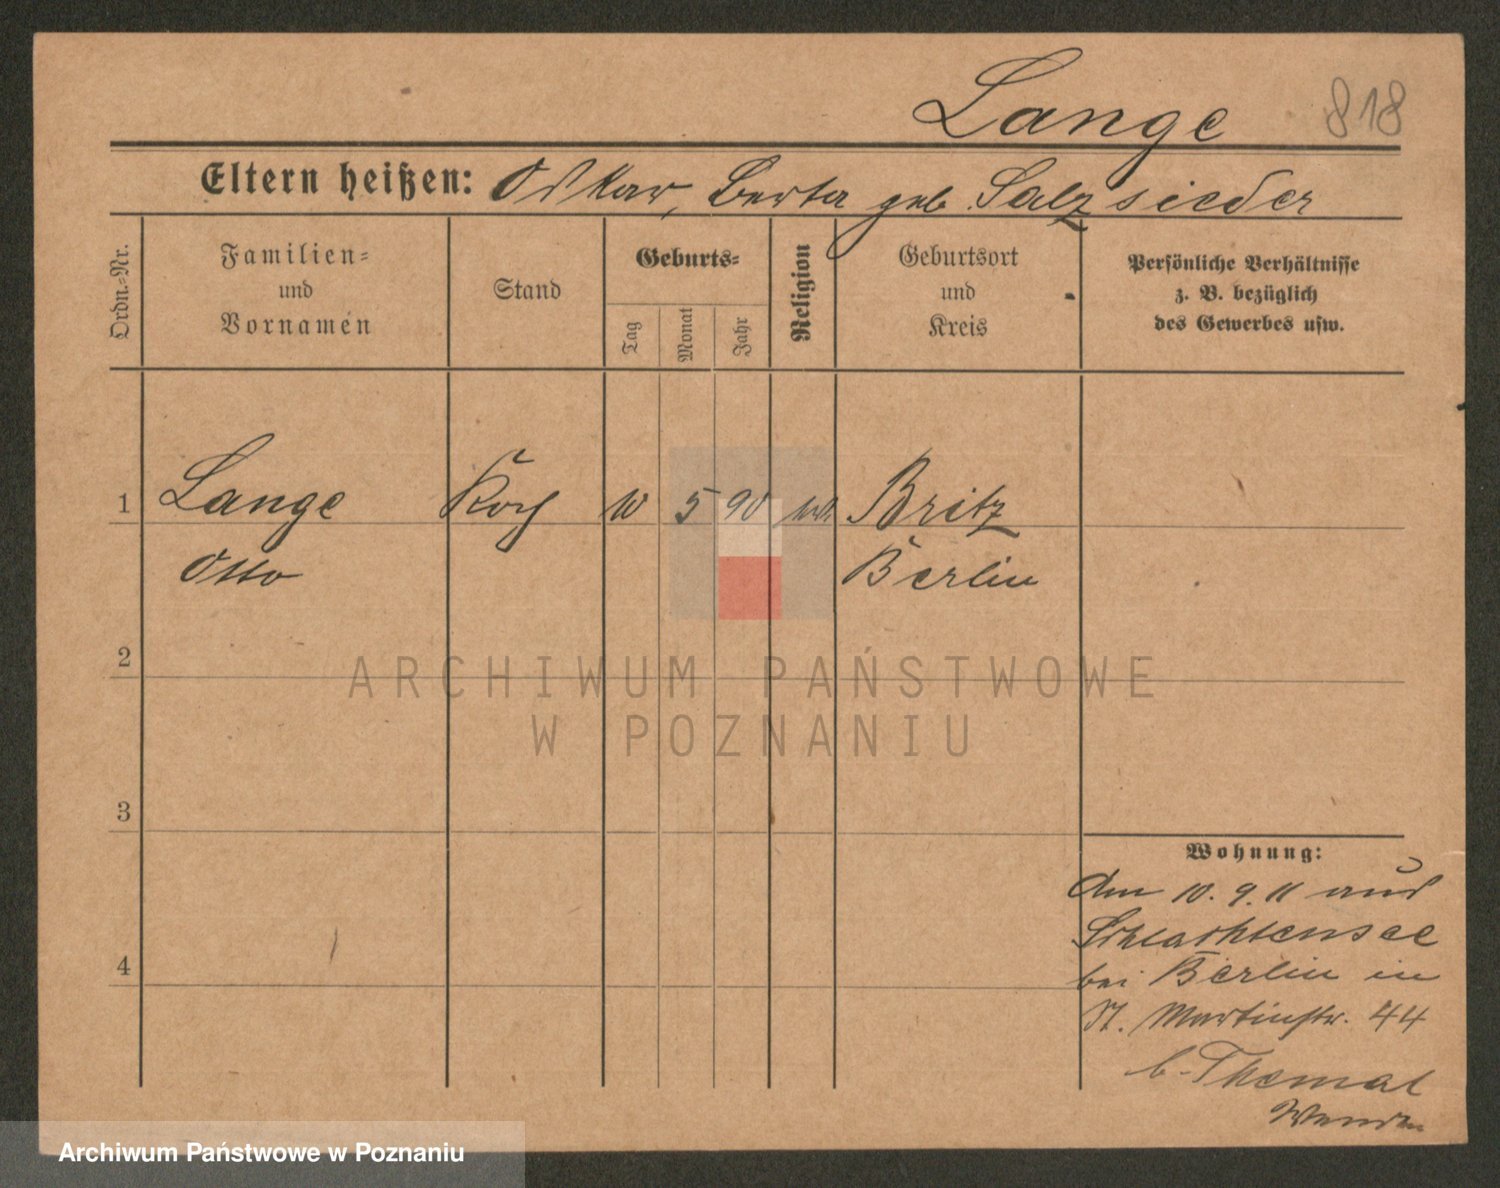 Lange 818
Eltern heißen: Oskar, Berta geb. Salzsieder
Ordn.-Nr.
Familien-
und
Vornamen
Stand
Geburts-
Tag
Monat
Jahr
Religion
Geburtsort
und
Kreis
Persönliche Verhältnisse
z. B. bezüglich
des Gewerbes usw.
1 Lange Koch 10 5 90 Britz
Otto Berlin
2
3
4
Wohnung:
Am 10. 9. 11 aus
Schlachtensee
bei Berlin in
St. Martinstr. 44
b. Themal
Wenden
ARCHIWUM PAŃSTWOWE
W POZNANIU
Archiwum Państwowe w Poznaniu